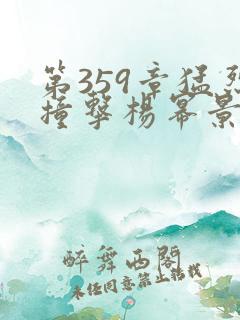 第359章猛烈
撞擊楊幂景
醉舞西閣
未经同意禁止转载